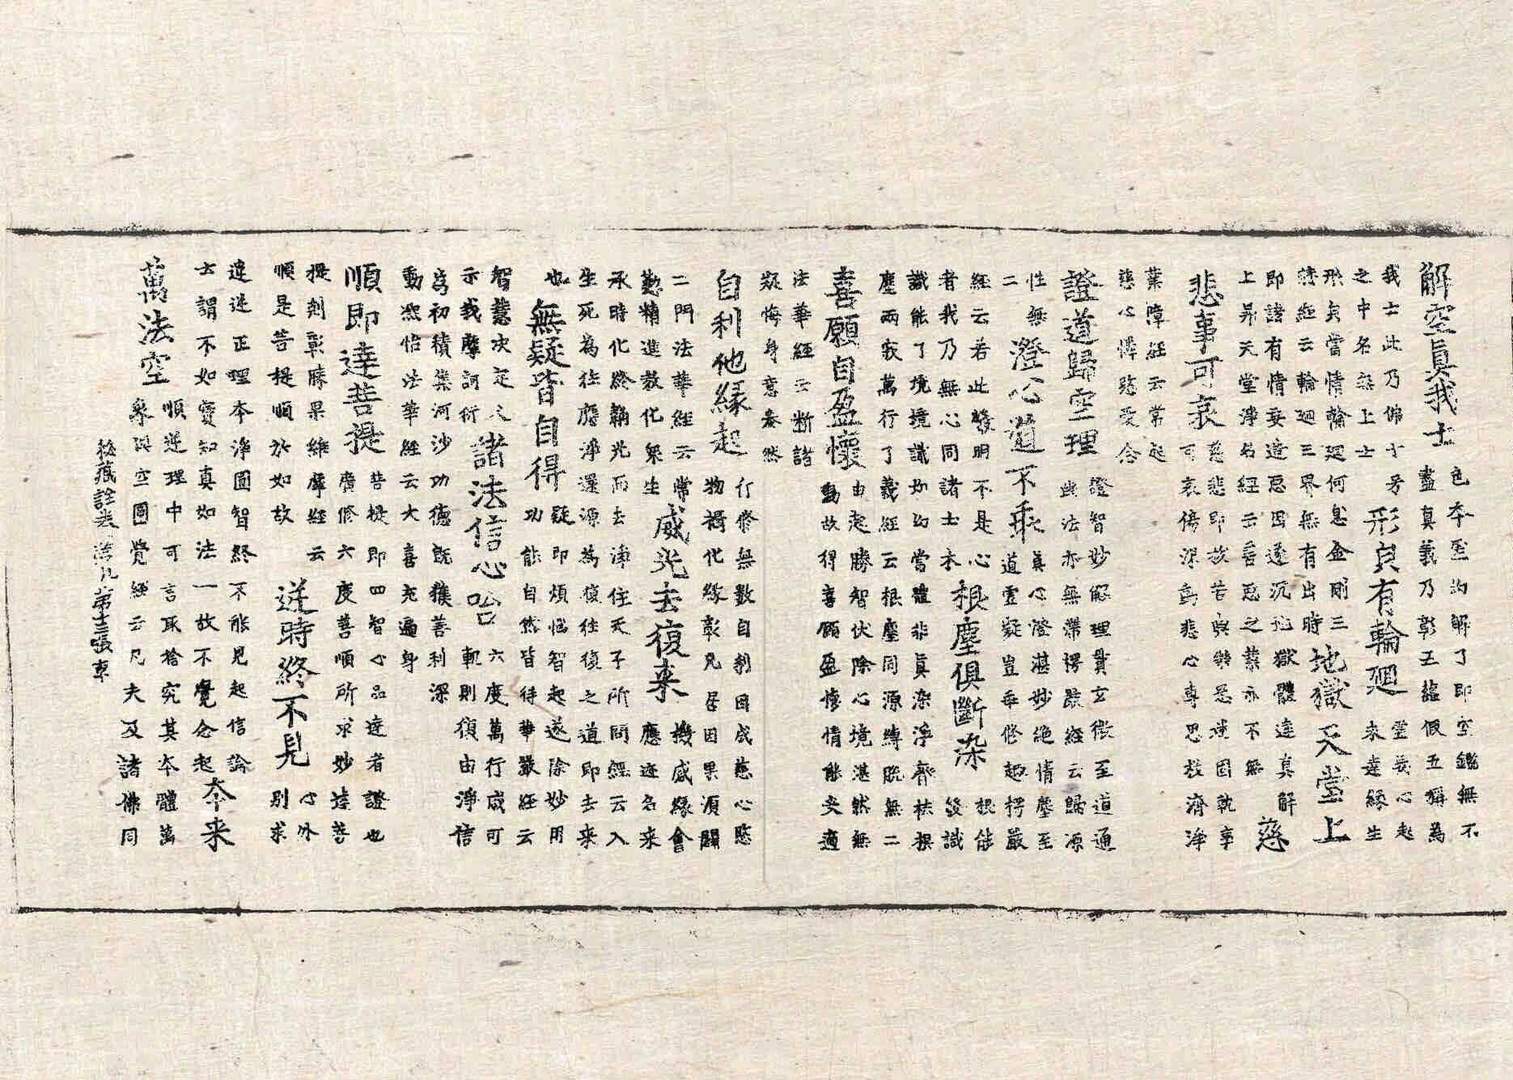 解空眞我士
色本空均解了即空鑑無不
盡真義乃彰五蘊假五稱為
我士此乃佛十号
之中名無上士
形皃有輪廻
堂妄心起
衆違緣生
形皃當情輪廻何息金剛三
昧經云輪廻三界無有出時
地獄天堂上
即諸有情妄造惡因遂沉地獄體達真解
上昇天堂淨名經云善惡之業亦不無
慈
悲事可哀
慈悲即拔苦與樂愚迷因執事
可哀傷深爲悲心專思救濟淨
業障經云常起
慈心憐愍愛念
證道歸空理
證智妙解理貫玄微至道通
幽法亦無滯楞嚴經云歸源
性無
二
澄心道不乖
真心澄湛妙絶情塵至
道虛凝豈乖修趣楞嚴
經云若此發明不是心
者我乃無心同諸士木
根塵俱斷染
根能
發識
識能了境境識如幻當體非眞染淨齊祛根
塵兩寂萬行了義經云根塵同源縛脫無二
喜願自盈懷
由起勝智伏除心境湛然無
動故得喜願盈懷情能安適
法華經云斷諸
疑悔身意泰然
自利他緣起
行修無數自利因成慈心愍
物攝化緣彰凡居因果須關
二門法華經云常
勤精進教化衆生
威光去復来
機感緣會
應迹名来
承時化終韜光而去淨住天子所問經云入
生死為往應淨還源為復往復之道即去来
也
無疑皆自得
疑即煩惱智起遂除妙用
功能自然皆得華嚴經云
智慧決定入
示我摩訶衍
諸法信心哈
六度萬行成可
軌則須由淨信
為初積業河沙功德既獲善利深
動怡法華經云大喜充遍身
順即達菩提
菩提即四智心品達者證也
廣修六度善順所求妙達菩
提剋彰勝果維摩經云
順是菩提順於如故
逆時終不見
心外
別求
違迷正理本淨圓智終不能見起信論
云謂不如實知真如法一故不覺念起
本来
萬法空
順逆理中可言取捨究其本體萬
象與空圓覺經云凡夫及諸佛同
秘藏詮卷第九 第十三張 章